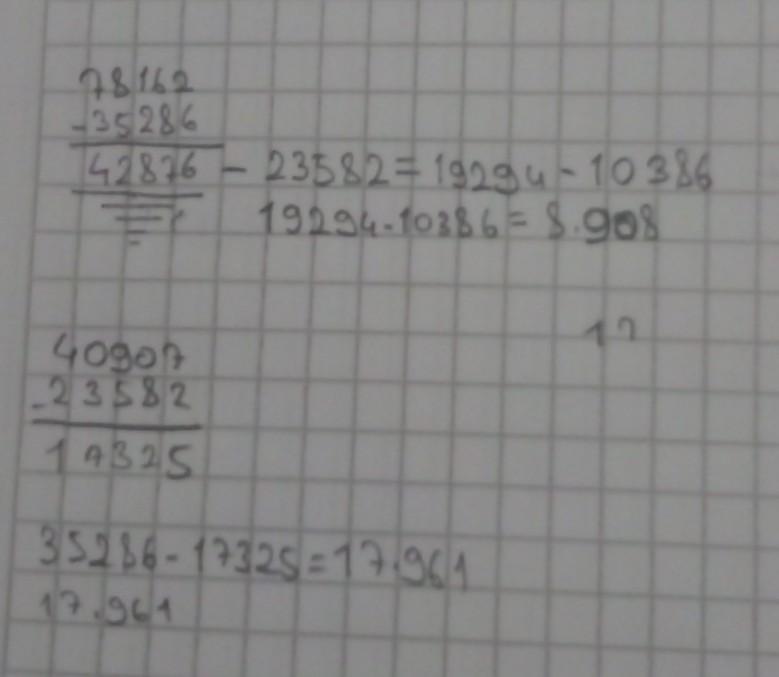 78162
-35286
42876 - 23582 = 19294 - 10386
19294-10386 = 8.908
12
40907
-23582
17325
35286-17325 = 17.961
17.961